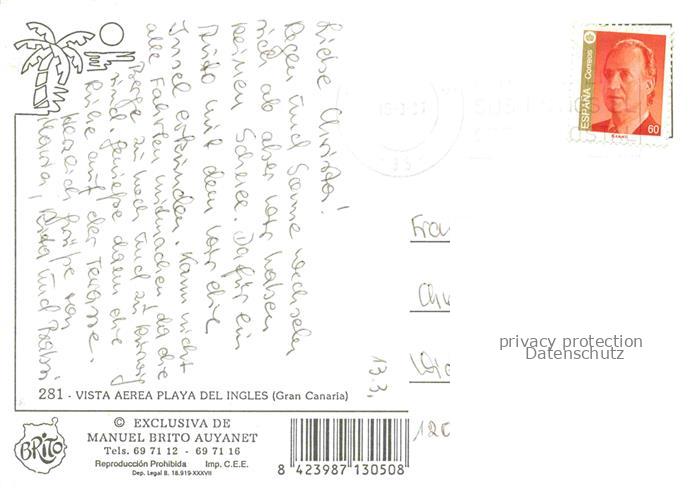 Liebe Christa!
Regen und Sonne wechseln
sich ab aber wir haben
keinen Schnee. Dafür ein
Auto mit dem wir die
Insel erkunden. Kann nicht
alle Fahrten mitmachen da die
Berge zu hoch und zu kurvig
sind. Genieße dann die
Ruhe auf der Terrasse.
Herzlich Grüße von
und
13.3.
ESPAÑA
Correos
60
281 - VISTA AEREA PLAYA DEL INGLES (Gran Canaria)
© EXCLUSIVA DE
MANUEL BRITO AUYANET
Tels. 69 71 12 - 69 71 16
Reproducción Prohibida Imp. C.E.E.
Dep. Legal B. 18.919-XXXVII
BRITO
8 423987 130508
Frau
120
privacy protection
Datenschutz